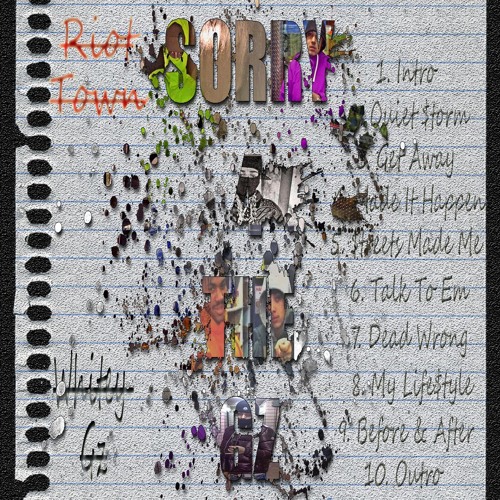 Riot
Town
SORRY
THE
GZ
Whitey
Gz
1. Intro
Quiet $torm
Get Away
Made It Happen
5. Streets Made Me
6. Talk To Em
7. Dead Wrong
8. My Life$tyle
9. Before & After
10. Outro